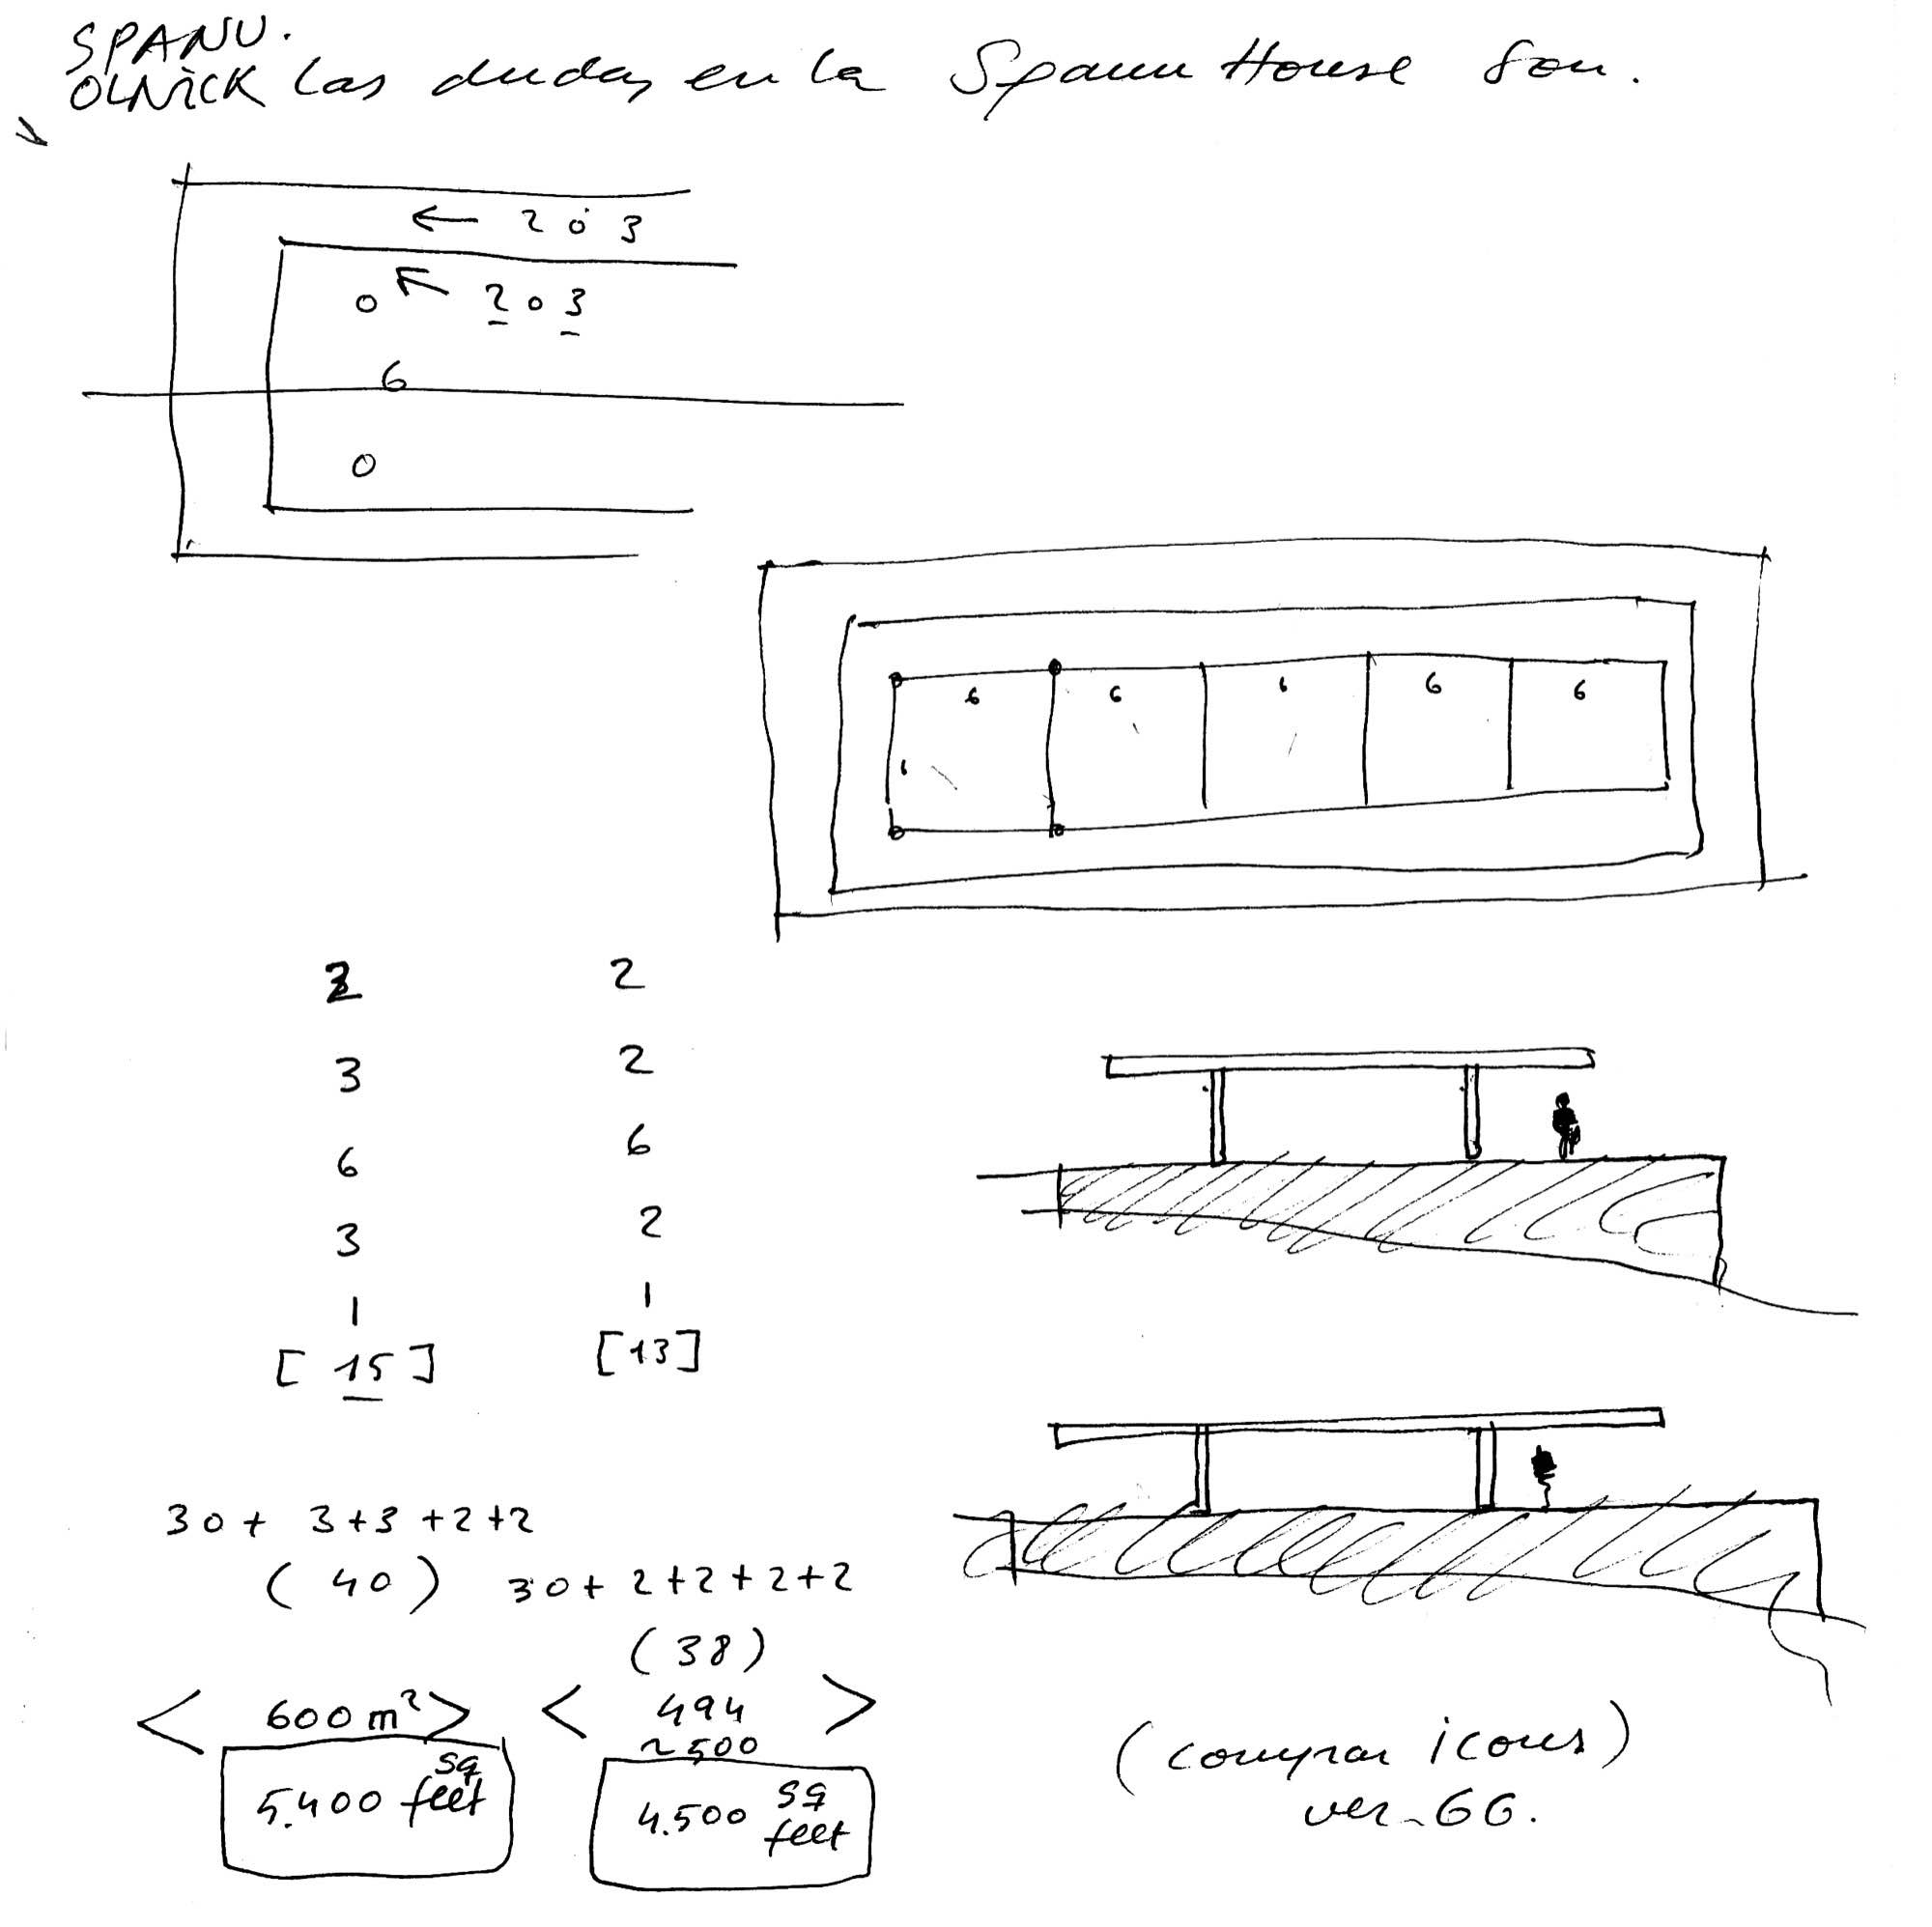 SPANU.
OLNICK las dudas en la Spanu House son.
← 2 ó 3
2 o 3
6
6 6 6 6 6
6
3 2
3 2
6 6
3 2
1 1
[15] [13]
30+ 3+3+2+2
(40) 30+2+2+2+2
(38)
< 600 m²> < 494 >
~500
5.400 sq feet
4.500 sq feet
(comprar icons)
ver-GG.